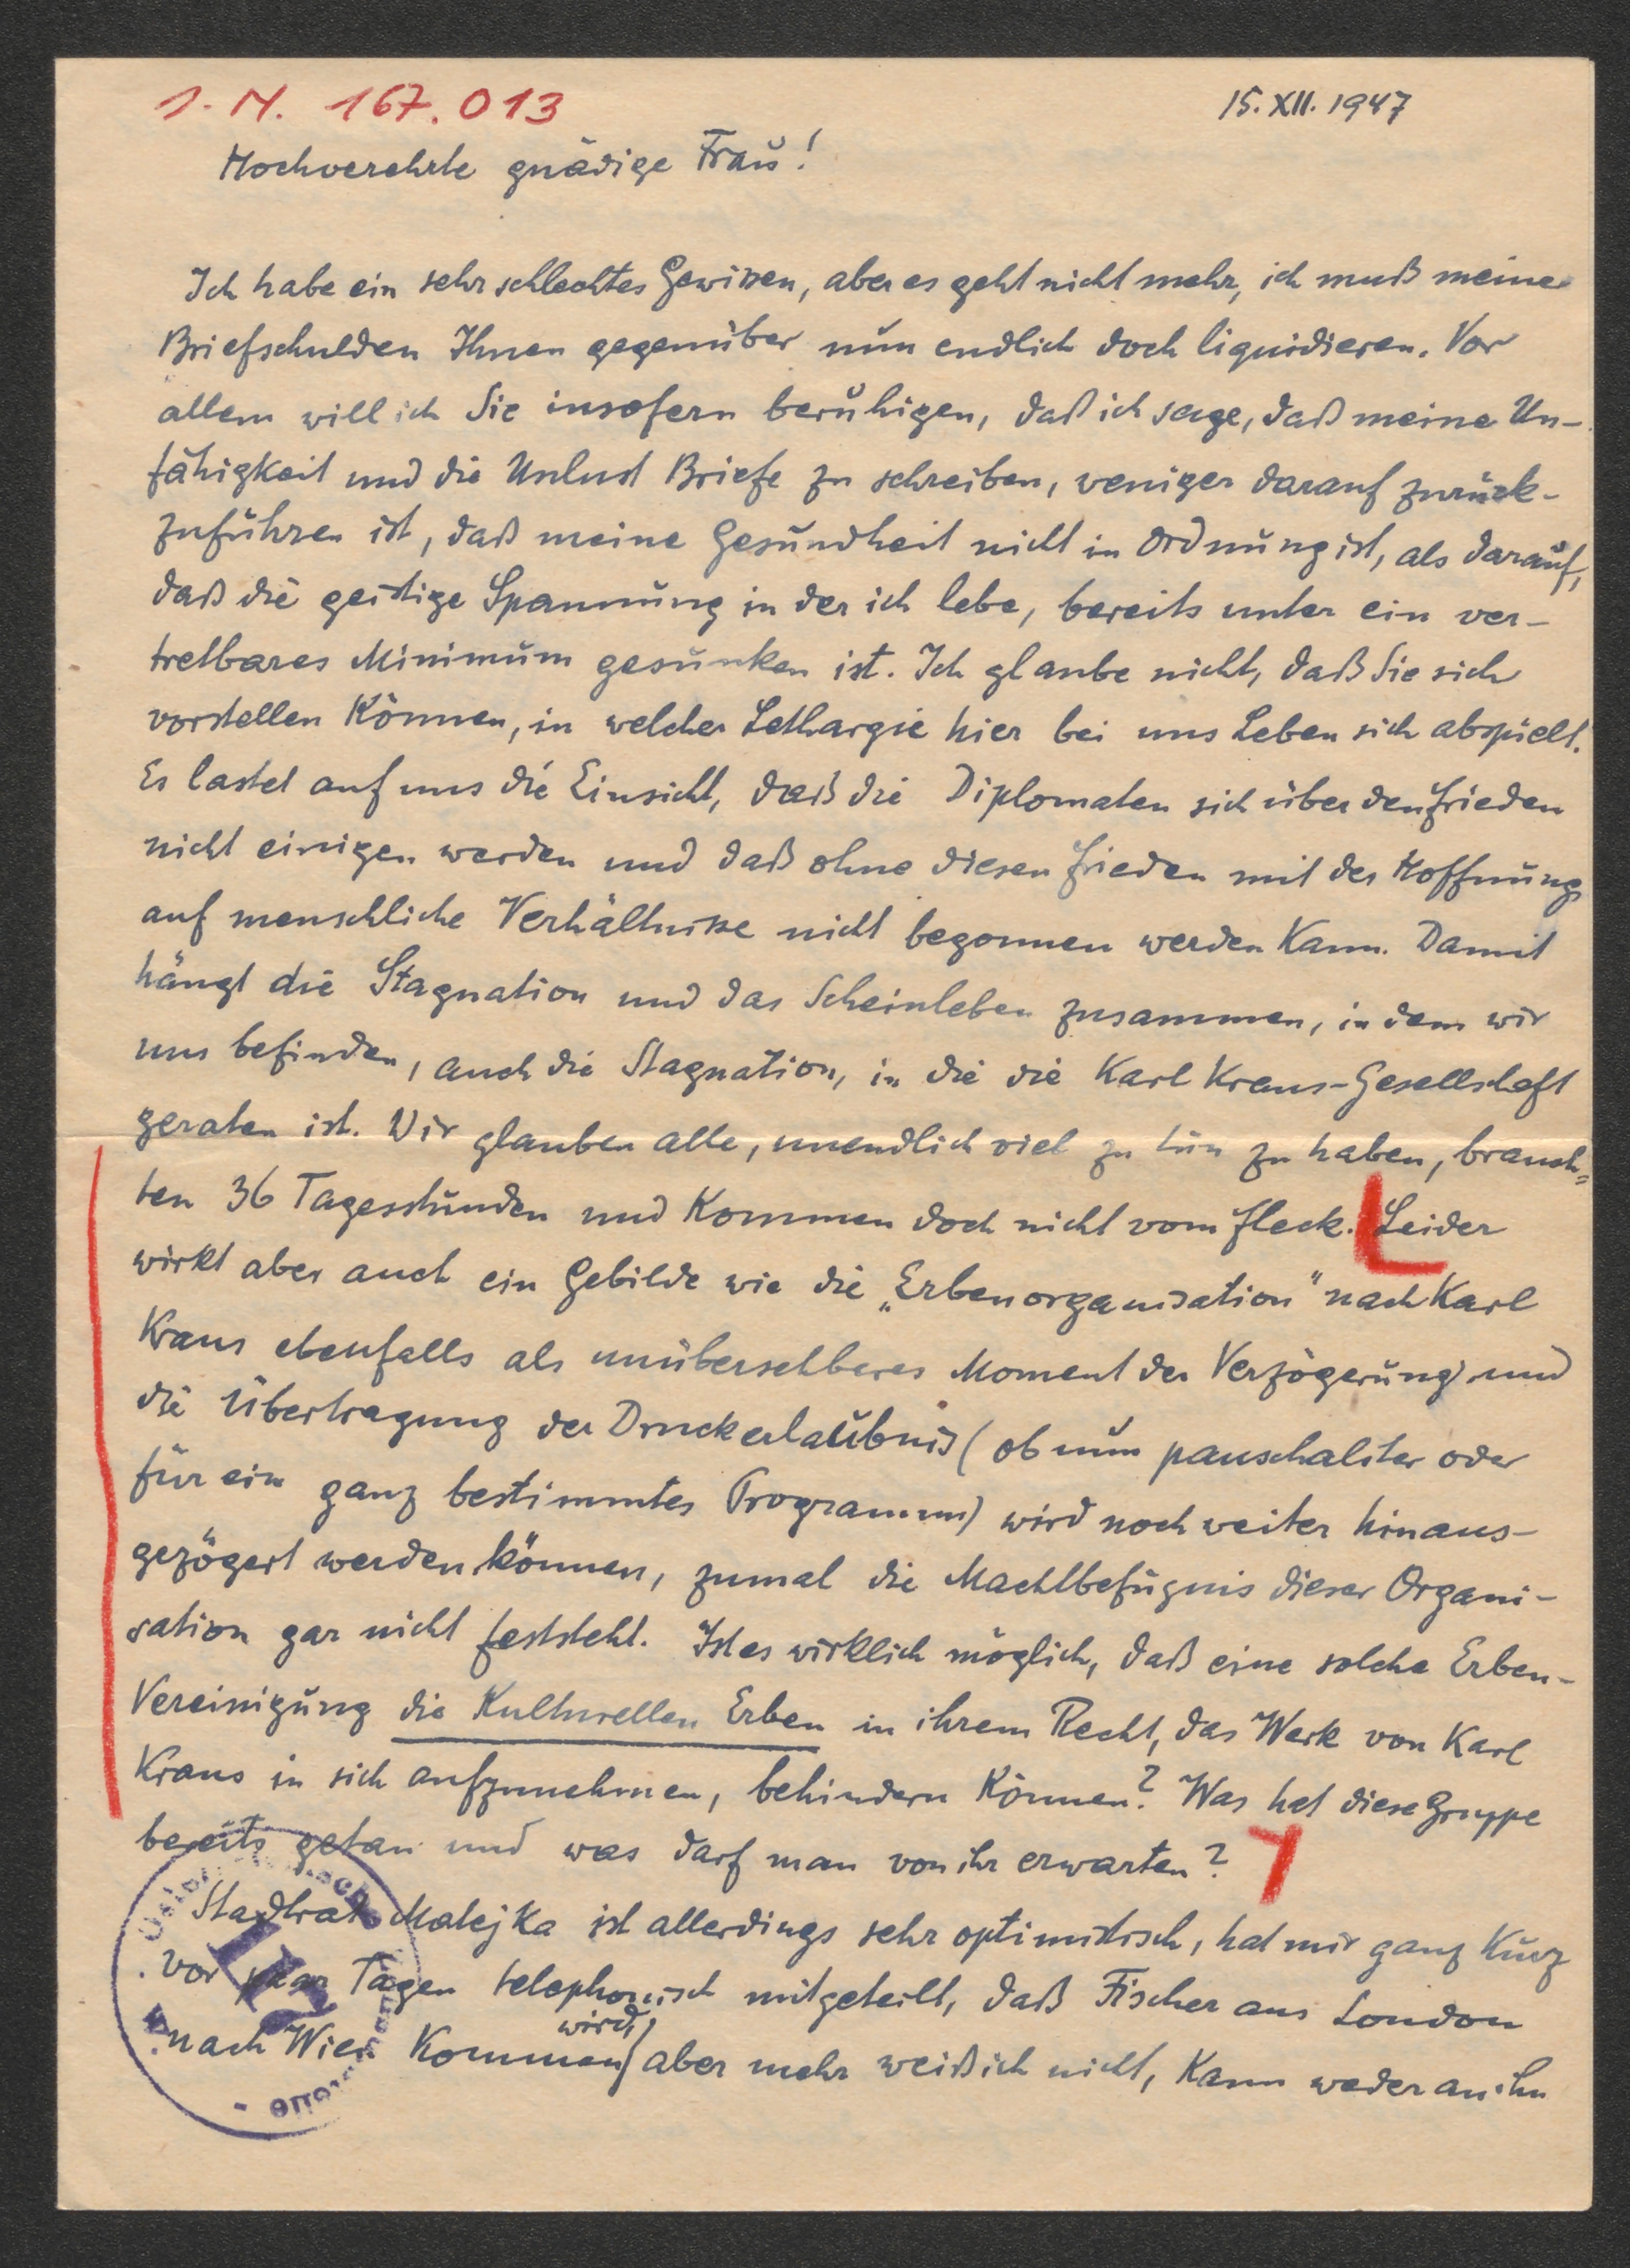 I. N. 167.013
15. XII. 1947
Hochverehrte gnädige Frau!
Ich habe ein sehr schlechtes Gewissen, aber es geht nicht mehr, ich muß meine
Briefschulden Ihnen gegenüber nun endlich doch liquidieren. Vor
allem will ich Sie insofern beruhigen, daß ich sage, daß meine Un-
fähigkeit und die Unlust Briefe zu schreiben, weniger darauf zurück-
zuführen ist, daß meine Gesundheit nicht in Ordnung ist, als darauf,
daß die geistige Spannung in der ich lebe, bereits unter ein ver-
tretbares Minimum gesunken ist. Ich glaube nicht, daß Sie sich
vorstellen können, in welcher Lethargie hier bei uns Leben sich abspielt.
Es lastet auf uns die Einsicht, daß die Diplomaten sich über den Frieden
nicht einigen werden und daß ohne diesen Frieden mit der Hoffnung
auf menschliche Verhältnisse nicht begonnen werden kann. Damit
hängt die Stagnation und das Scheinleben zusammen, in dem wir
uns befinden, auch die Stagnation, in die die Karl Kraus-Gesellschaft
geraten ist. Wir glauben alle, unendlich viel zu tun zu haben, brauch=
ten 36 Tagesstunden und kommen doch nicht vom Fleck. Leider
wirkt aber auch ein Gebilde wie die „Erbenorganisation" nach Karl
Kraus ebenfalls als unübersehbares Moment der Verzögerung und
die Übertragung der Druckerlaubnis (ob nun pauschaliter oder
für ein ganz bestimmtes Programm) wird noch weiter hinaus-
gezögert werden können, zumal die Machtbefugnis dieser Organi-
sation gar nicht feststeht. Ist es wirklich möglich, daß eine solche Erben-
Vereinigung die kulturellen Erben in ihrem Recht, das Werk von Karl
Kraus in sich aufzunehmen, behindern können? Was hat diese Gruppe
bereits getan und was darf man von ihr erwarten?
Stadtrat Matejka ist allerdings sehr optimistisch, hat mir ganz kurz
vor paar Tagen telephonisch mitgeteilt, daß Fischer aus London
nach Wien kommen wird, aber mehr weiß ich nicht, kann weder an ihn